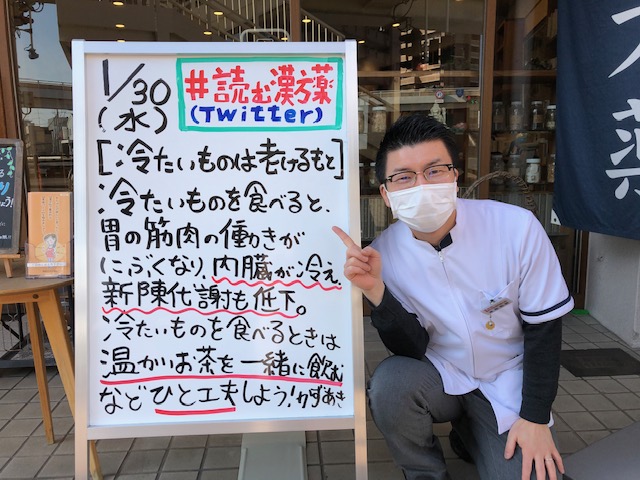 1/30
(水)
#読む漢方薬
(Twitter)
[冷たいものは老けるもと]
冷たいものを食べると、
胃の筋肉の働きが
にぶくなり、内臓が冷え
新陳代謝も低下。
冷たいものを食べるときは
温かいお茶を一緒に飲む
などひと工夫しよう!かずあき
薬